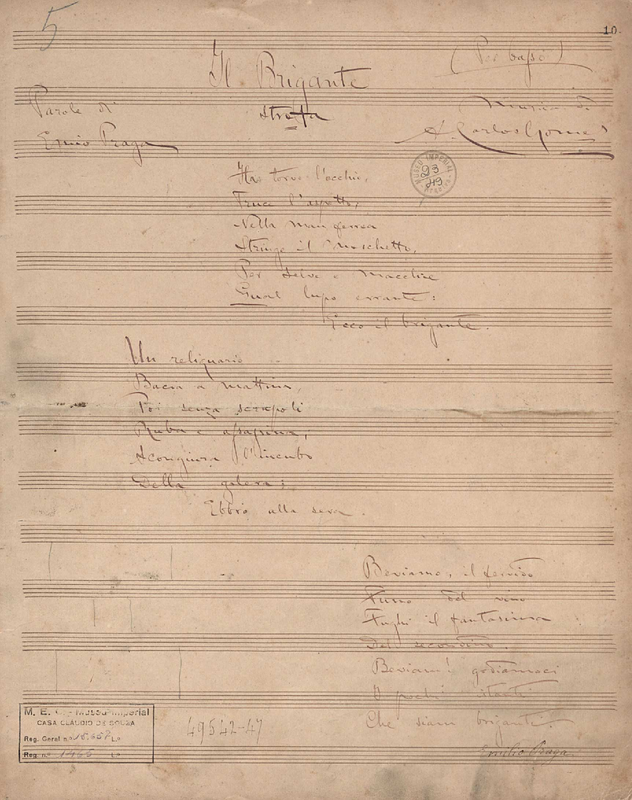 5
10
(Per basso)
Il Brigante
strofa
Parole di
Emilio Praga
Musica di
A. Carlos Gomes
MUSEO IMPERIAL
Ha torvo l'occhio,
Truce l'aspetto,
Nella man ferrea
Stringe il moschetto,
Per selve e macchie
Qual lupo errante:
Ecco il brigante.
Un reliquario
Bacia a mattina,
Poi senza scrupoli
Ruba e assassina,
Scongiura l'incubo
Della galera;
Ebbro alla sera.
Beviamo, il fervido
Fumo del vino
Fughi il fantasima
Del secondino.
Beviam! godiamoci
I pochi istanti
Che siam briganti.
Emilio Praga
M. E. C. - Museu Imperial
CASA CLAUDIO DE SOUZA
Reg. Geral n.º
Reg. n.º
49542-47